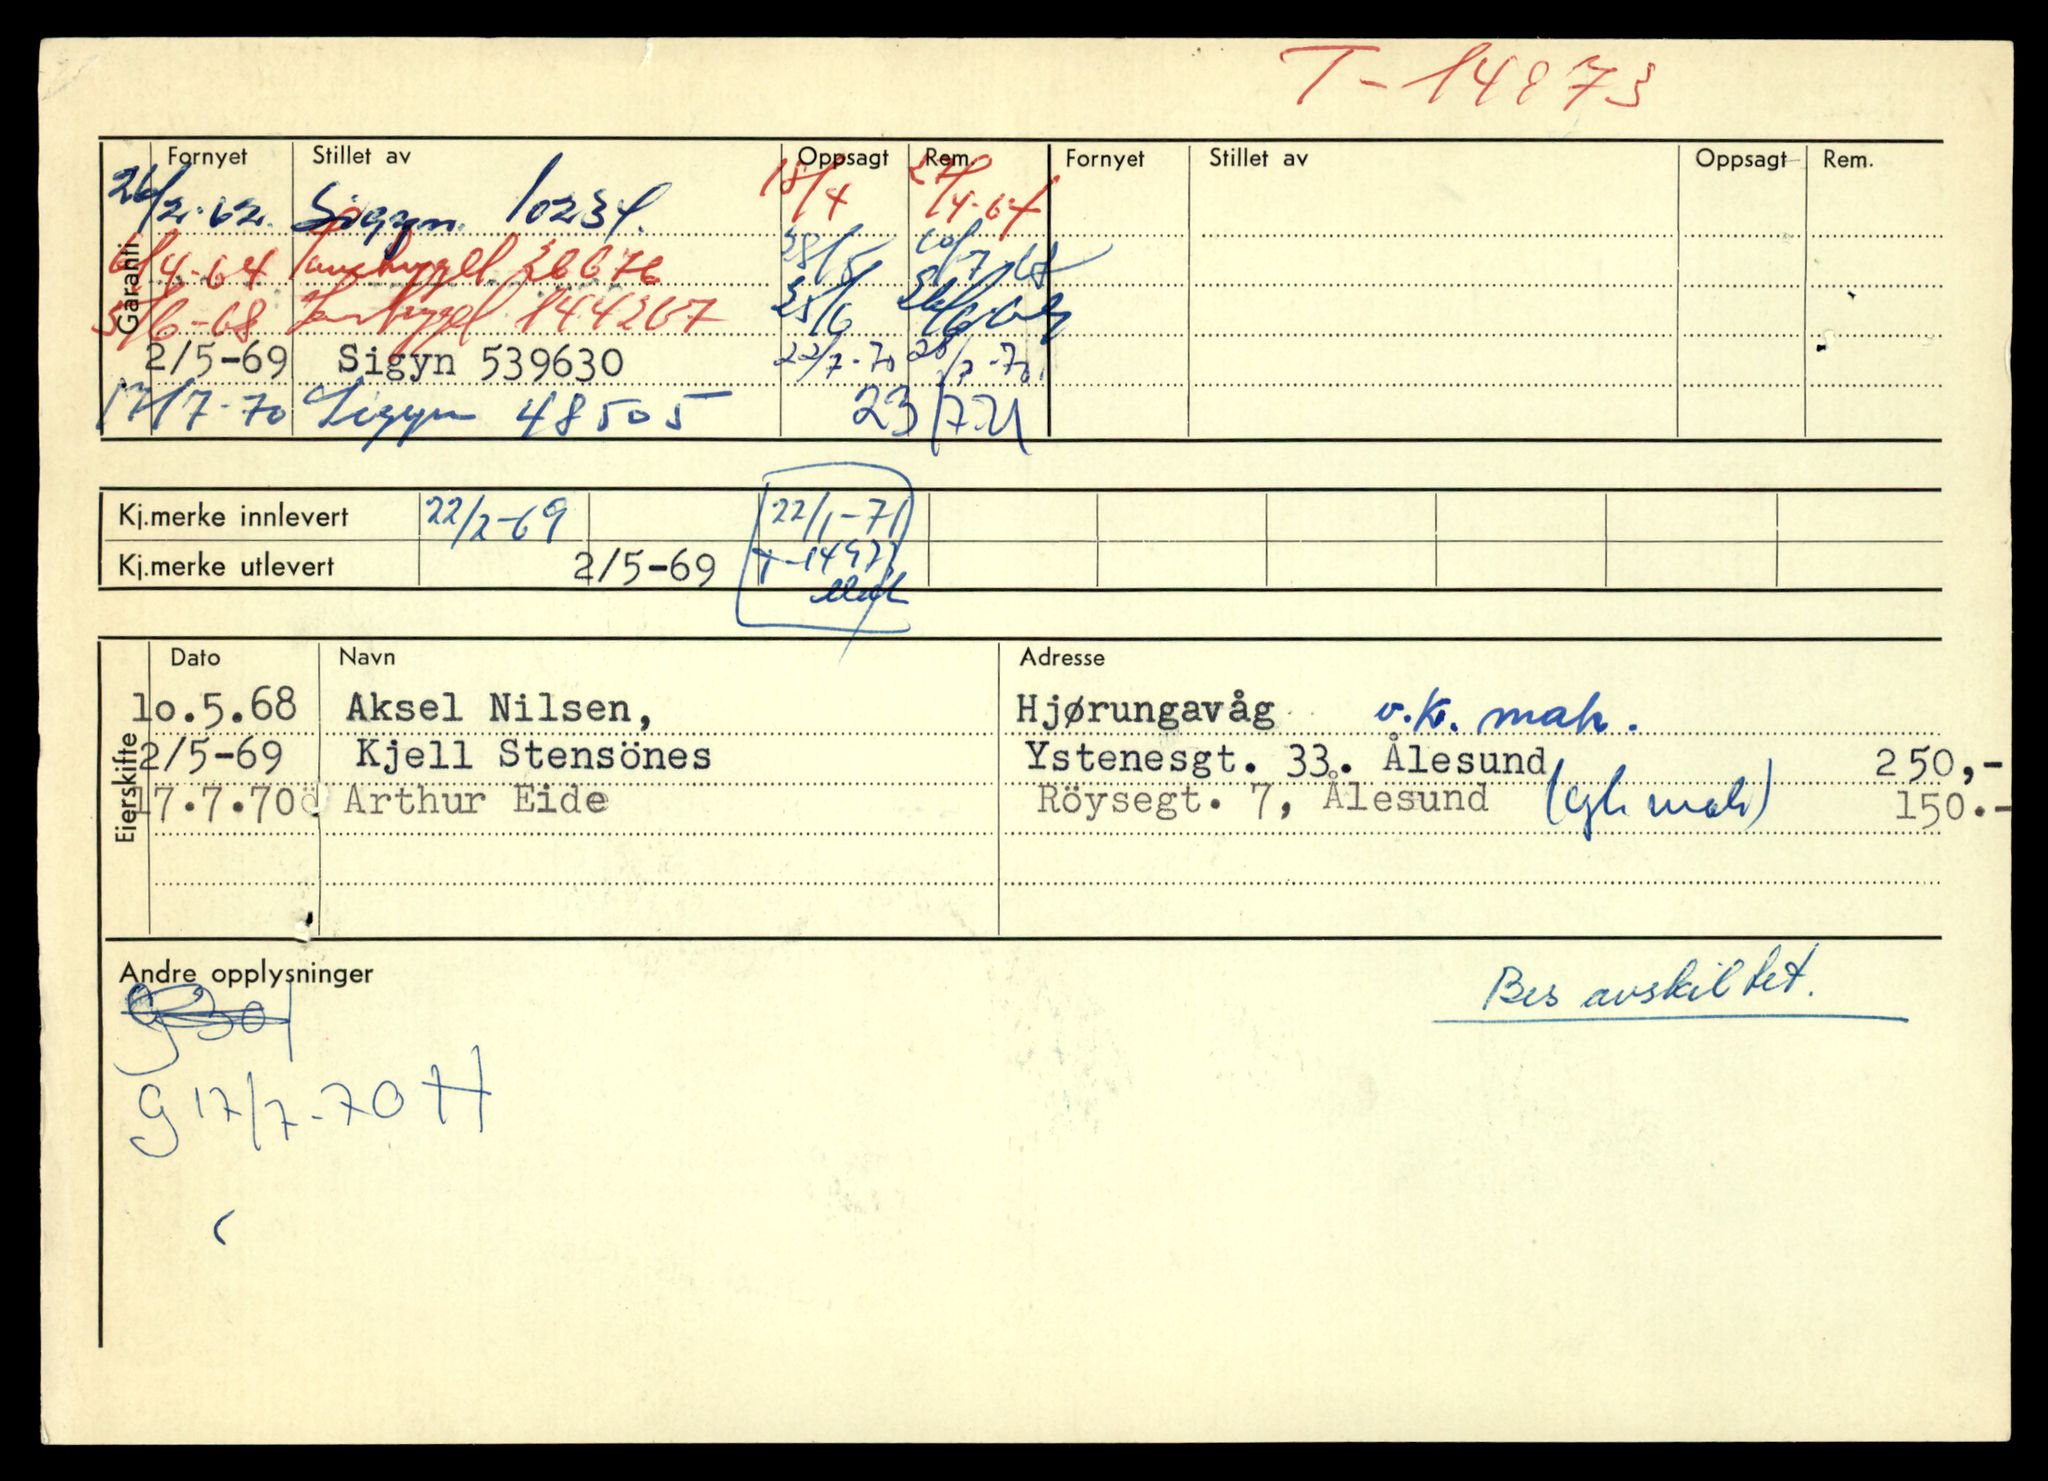 T-14973
Garanti Fornyet Stillet av Oppsagt Rem. Fornyet Stillet av Oppsagt Rem.
26/2-62. Sigyn 10234. 18/4 27/4-64
6/4-64 26676 28/5 10/7-68
5/6-68 144267 25/6 26/6-69
2/5-69 Sigyn 539630 22/7-70 28/7-70
17/7-70 Sigyn 48505 23/7-71
Kj.merke innlevert 22/2-69 22/1-71
Kj.merke utlevert 2/5-69 T-14973
Eierskifte Dato Navn Adresse
10.5.68 Aksel Nilsen, Hjørungavåg v.k. mak.
2/5-69 Kjell Stensönes Ystenesgt. 33. Ålesund 250,-
17.7.70ö Arthur Eide Röysegt. 7, Ålesund 150.-
Andre opplysninger
Bes avskiltet.
G 17/7-70 H